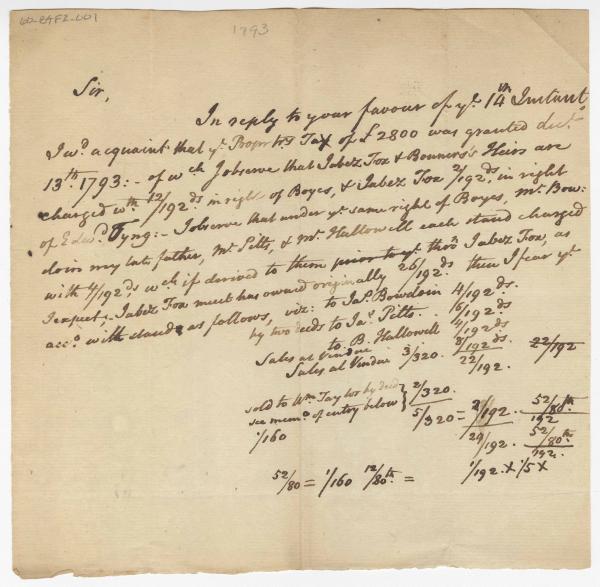 60-EAF2-001
1793
Sir,
In reply to your favour of ye. 14th Instant
I wd. acquaint that ye. Proprtrs Tax of £2800 was granted decr.
13th. 1793: - of wch I observe that Jabez Fox & Heirs are
charged wth 12/192ds in right of Boyes, & Jabez Fox 2/192.ds in right
of Edwd. Tyng: - I observe that under ye. same right of Boyes, Mr. Bow:
doin my late father, Mr. Pitts, & Mr. Hallowell each stand charged
with 4/192ds, wch if derived to them prior to ye. thro' Jabez Fox, as
I expect; Jabez Fox must has owned originally 26/192.ds then I fear ye
acco. will stand as follows, viz: to Jas. Bowdoin 4/192.ds.
by two deeds to Jas. Pitts.. 6/192.ds
to B. Hallowell 4/192.ds
Sales at Vendue 8/192ds. 22/192
Sales at Vendue 3/320. 22/192.
sold to Wm. Taylor by deed 2/320.
see memo. of entry below 5/320 = 2/192. 52/80th.
192
1/160 24/192. 52/80th.
192.
52/80 = 1/160 12/80th. = 1/192. X 1/5 X